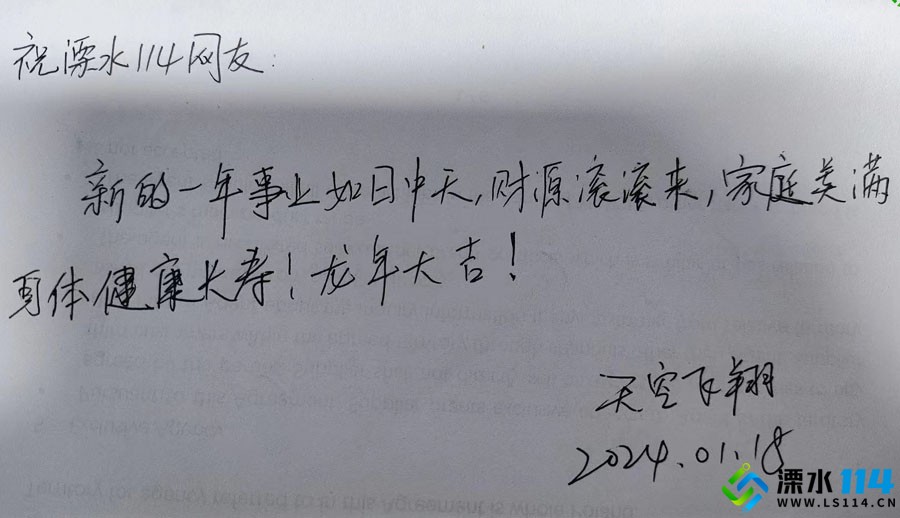 祝溧水114网友:
新的一年事业如日中天,财源滚滚来,家庭美满
身体健康长寿!龙年大吉!
天空飞翔
2024.01.18
溧水114
WWW.LS114.CN